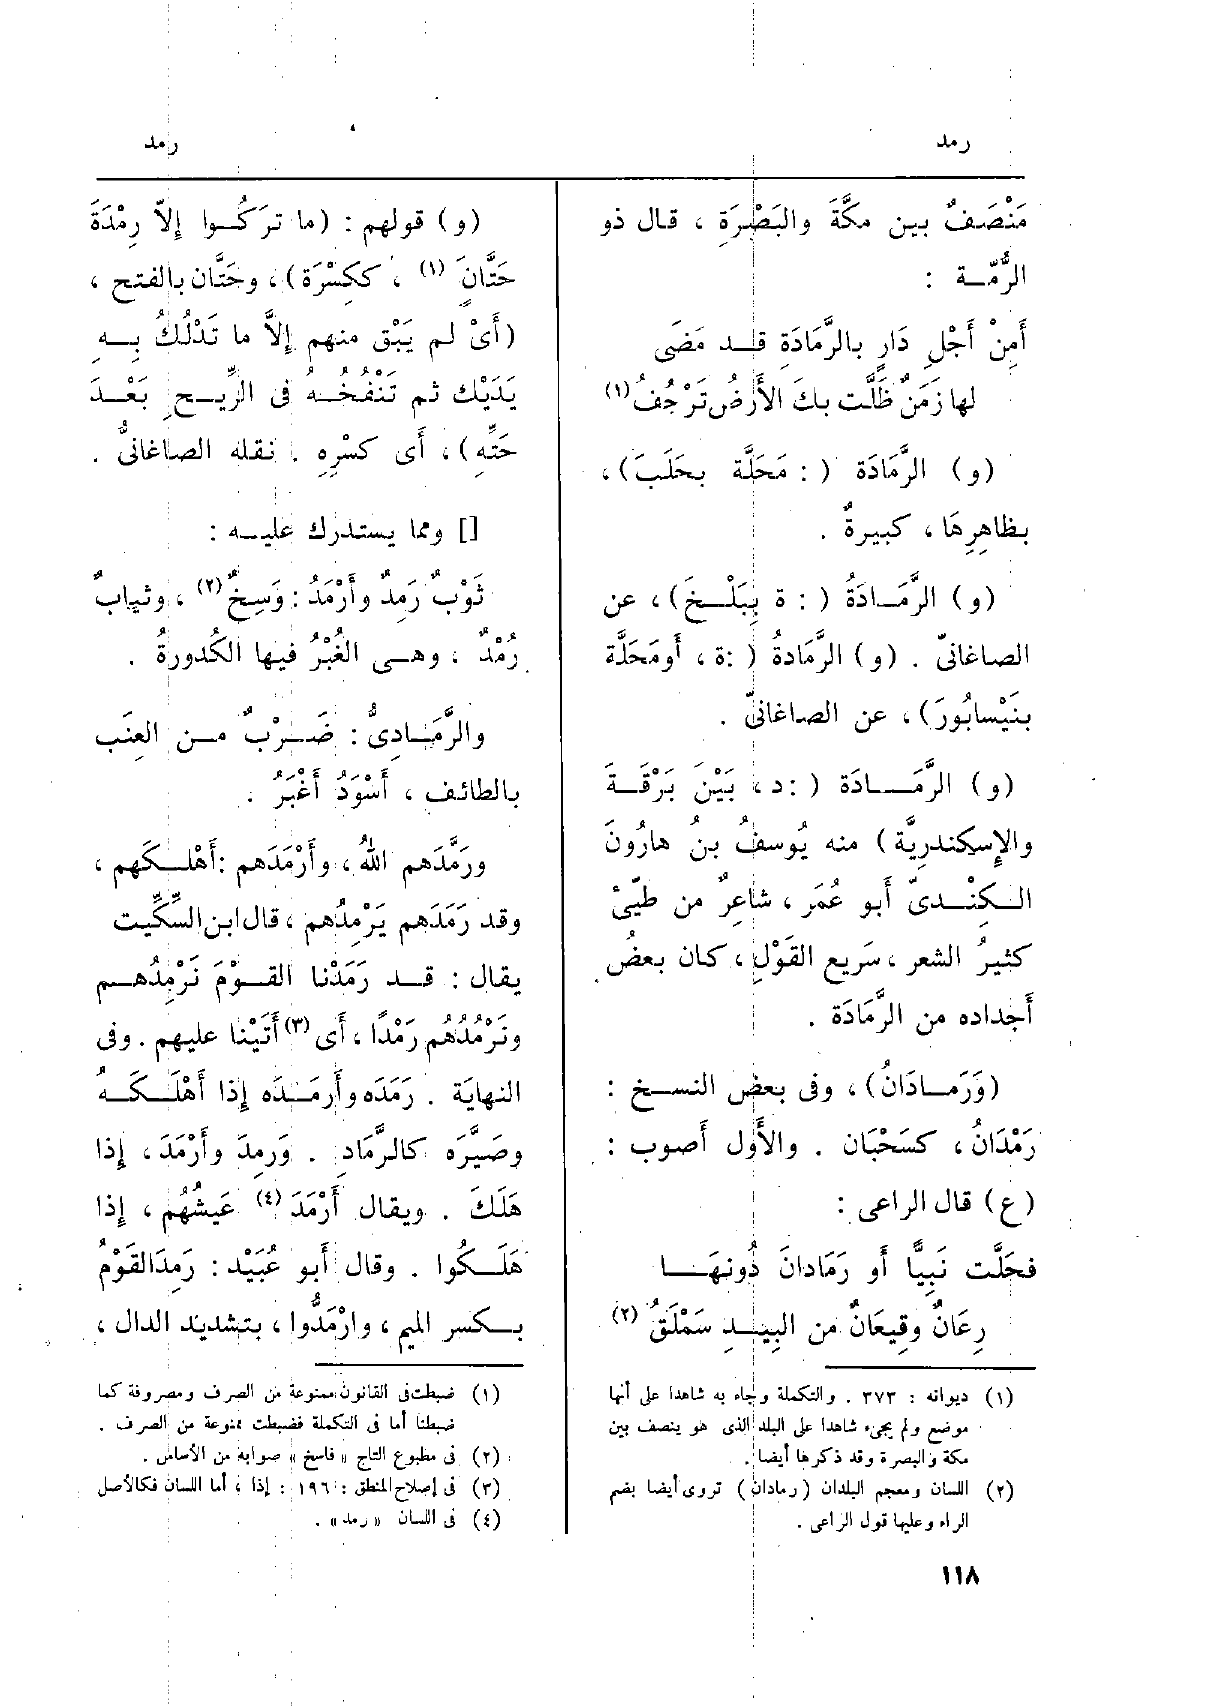 رمد
رمد
مَنْصَفٌ بين مكَّةَ والبَصْرَةِ ، قال ذو
الرُّمَّــة :
أَمِنْ أَجْلِ دَارٍ بالرَّمَادَةِ قــد مَضَى
لها زَمَنٌ ظَلَّت بكَ الأَرضُ تَرْجُفُ (١)
(و) الرَّمَادَة ( : مَحَلَّة بحَلَبَ) ،
بظاهِرِهَا ، كبيرةٌ .
(و) الرَّمَــادَةُ ( : ة بِبَلْــخَ) ، عن
الصاغانىّ . (و) الرَّمَادةُ ( :ة ، أَومَحَلَّة
بنَيْسابُورَ) ، عن الصاغانىّ .
(و) الرَّمَــــادَة ( :د ، بَيْنَ بَرْقَــةَ
والإِسكندريَّة) منه يُوسفُ بنُ هارُونَ
الــكِنْــدىّ أَبو عُمَر ، شاعِرٌ من طيِّئْ
كثيرُ الشعر ، سَريع القَوْلِ ، كان بعضُ
أَجداده من الرَّمَادَة .
(وَرَمــادَانُ) ، وفى بعض النســخ :
رَمْدَانُ ، كسَحْبَان . والأَول أَصوب :
(ع) قال الراعى :
فحَلَّت نَبِيًّا أَو رَمَادانَ دُونهَــــا
رِعَانٌ وقِيعَانٌ من البِيــدِ سَمْلَقُ (٢)
(١) ديوانه : ٣٧٣ . والتكملة وجاء به شاهدا على أنها
موضع ولم يجىء شاهدا على البلد الذى هو ينصف بين
مكة والبصرة وقد ذكرها أيضا .
(٢) اللسان ومعجم البلدان (رمادان) تروى أيضا بضم
الراء وعليها قول الراعى .
(و) قولهم : (ما ترَكُــوا إِلاّ رِمْدَةَ
حَتَّانَ (١) ، ككِسْرَة) ، وحَتَّان بالفتح ،
(أَىْ لم يَبْق منهم إِلاَّ ما تَدْلُكُ بِــهِ
يَدَيْك ثم تَنْفُخُــهُ فى الرِّيــحِ بَعْــدَ
حَتِّهِ) ، أَى كسْرِهِ . نقله الصاغانىُّ .
[] ومما يستدرك عليــه :
ثَوْبٌ رَمِدٌ وأَرْمَدُ : وَسِخٌ (٢) ، وثيابٌ
رُمْدٌ ، وهــى الغُبْرُ فيها الكُدورةُ .
والرَّمَــادِىُّ : ضَــرْبٌ مــن العِنَب
بالطائف ، أَسْوَدُ أَغْبَرُ .
ورَمَّدَهم اللهُ ، وأَرْمَدَهم : أَهْلــكَهم ،
وقد رَمَدَهم يَرْمِدُهم ، قال ابن السِّكِّيت
يقال : قــد رَمَدْنا القــوْمَ نَرْمِدُهــم
ونَرْمُدُهُم رَمْدًا ، أَى (٣) أَتَيْنا عليهم . وفى
النهايَة . رَمَدَه وأَرمَــدَه إِذا أَهْلَــكَــهُ
وصَيَّرَه كالرَّمَادِ . وَرمِدَ وأَرْمَدَ ، إِذا
هَلَكَ . ويقال أَرْمَدَ (٤) عَيشُهُم ، إِذا
هَلَــكُوا . وقال أَبو عُبَيْد : رَمِدَ القَوْمُ
بــكسر الميم ، وارْمَدُّوا ، بتشديد الدال ،
(١) ضبطت فى القانون ممنوعة من الصرف ومصروفة كما
ضبطنا أما فى التكملة فضبطت ممنوعة من الصرف .
(٢) فى مطبوع التاج « فاسخ » صوابه من الأساس .
(٣) فى إصلاح المنطق : ١٩٦ : إذا ، أما اللسان فكالأصل
(٤) فى اللسان « رمد » .
١١٨